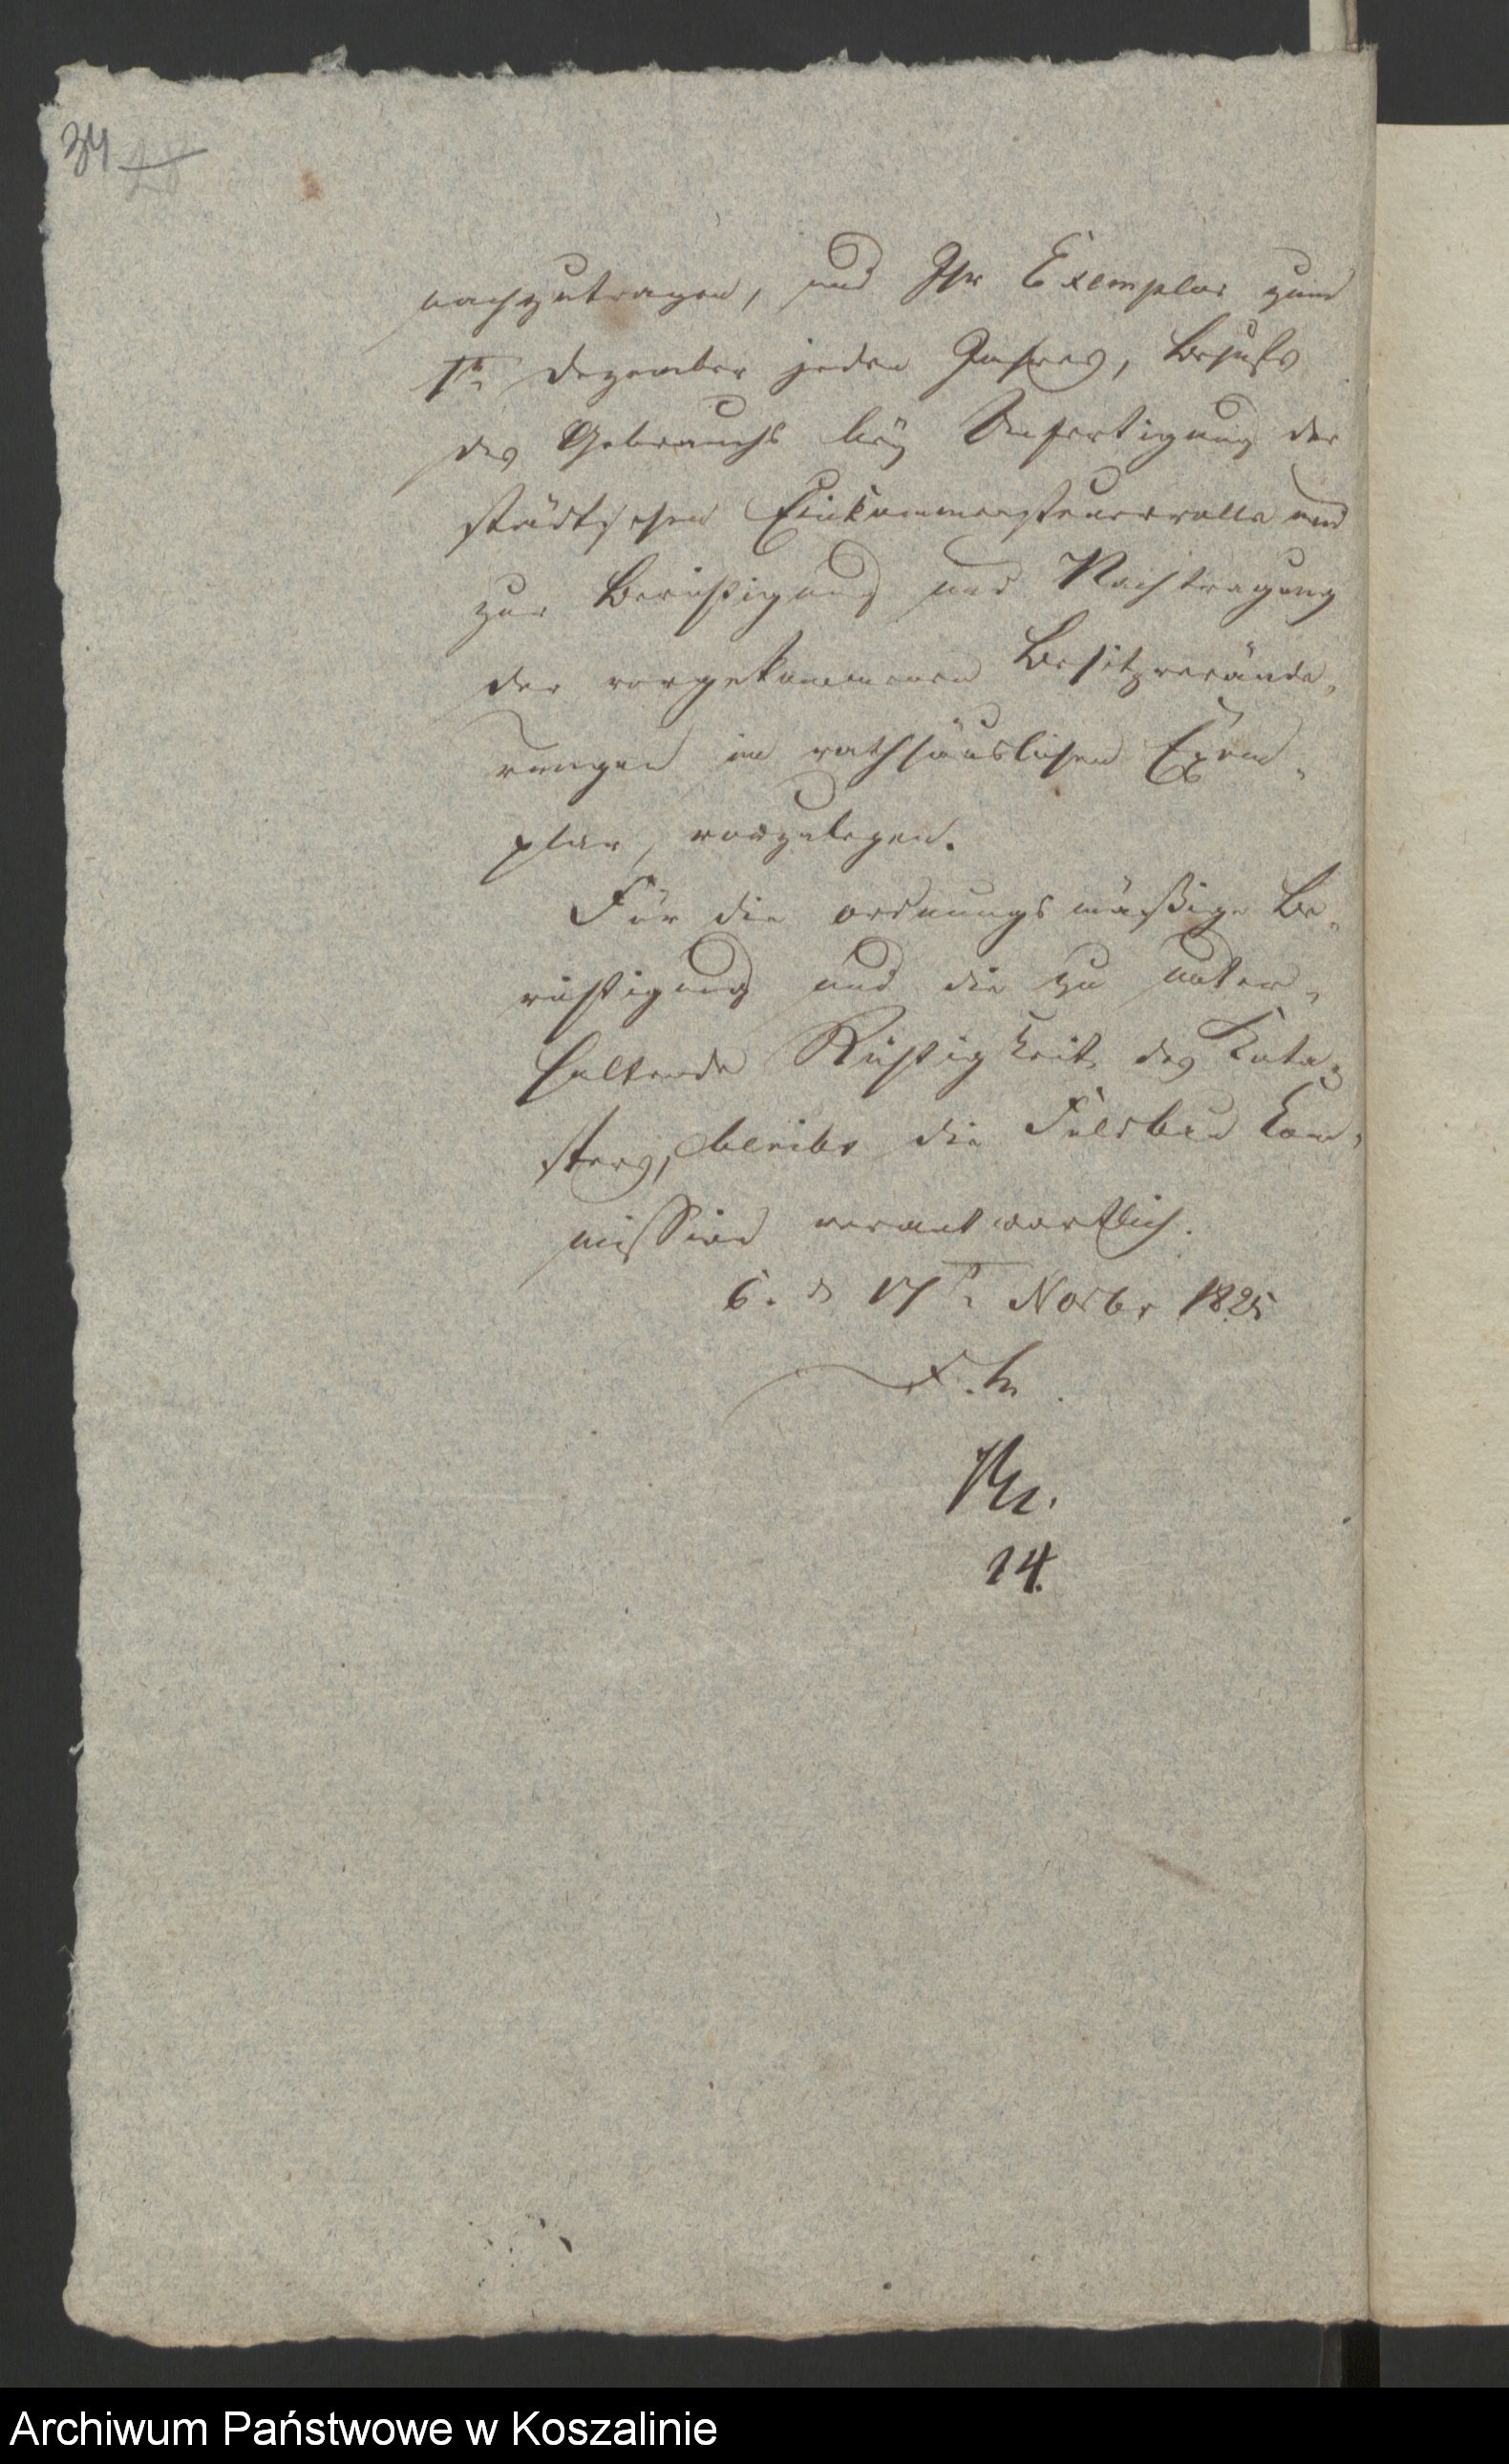 34 28
nachzutragen, und Ihr Exemplar zum
1tn Dezember jeden Jahres, Behufs
des Gebrauchs bey Anfertigung der
städtschen Einkommensteuerrolle und
zur Berichtigung und Nachtragung
der vorgekommenen Besitzverände-
rungen im rathhäuslichen Exem-
plar, vorzulegen.
Für die ordnungsmäßige Be-
richtigung und die zu unter-
haltende Richtigkeit des Cata-
sters, bleibt die Feldbau Com-
mission verantwortlich.
C. d 17tn Novbr 1825
14.
Archiwum Państwowe w Koszalinie